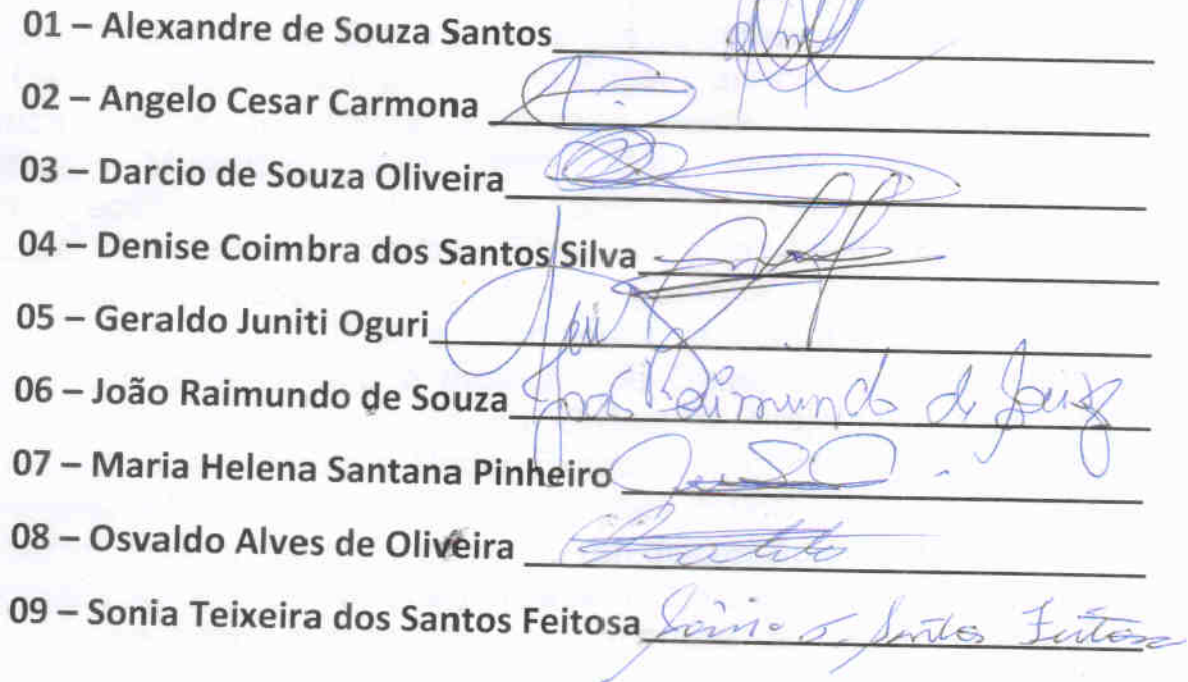 01 – Alexandre de Souza Santos
02 – Angelo Cesar Carmona
03 – Darcio de Souza Oliveira
04 – Denise Coimbra dos Santos Silva
05 – Geraldo Juniti Oguri
06 – João Raimundo de Souza Raimundo de
07 – Maria Helena Santana Pinheiro
08 – Osvaldo Alves de Oliveira
09 – Sonia Teixeira dos Santos Feitosa Santos Feitosa